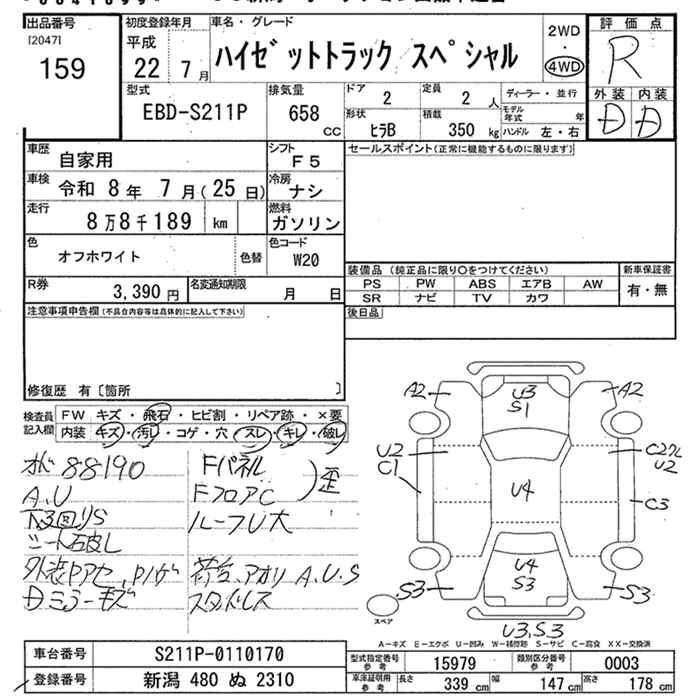 出品番号
[2047]
159
初度登録年月
平成
22 7月
車名・グレード
ハイゼットトラック スペシャル
2WD
・
4WD
評価点
R
外装 内装
D D
型式
EBD-S211P
排気量
658 CC
ドア
2
定員
2 人
形状
ヒラB
積載
350 kg
ディーラー・並行
モデル年式 年
ハンドル 左・右
車歴
自家用
シフト
F5
車検
令和 8年 7月(25日)
冷房
ナシ
走行
8万8千189 km
燃料
ガソリン
色
オフホワイト
色替
色コード
W20
R券
3,390 円
名変通知期限
月 日
セールスポイント(正常に機能するものに限ります)
装備品 (純正品に限り○をつけてください)
PS PW ABS エアB AW
SR ナビ TV カワ
新車保証書
有・無
後日品
注意事項申告欄(不具合内容等は具体的に記入して下さい)
修復歴 有〔箇所 〕
検査員記入欄
FW キズ・飛石・ヒビ割・リペア跡・×要
内装 キズ・汚レ・コゲ・穴・スレ・キレ・破レ
88190
A.U
下回りS
シート破レ
Dミラーキズ
Fパネル
FフロアC
歪
ルーフU大
荷台、アオリ A.U.S
スタッドレス
A2
U3
S1
A2
U2
C1
U4
U2
C3
S3
U4
S3
S3
U3,S3
スペア
A-キズ E-エクボ U-凹み W-補修跡 S-サビ C-腐食 XX-交換済
車台番号
S211P-0110170
登録番号
新潟 480 ぬ 2310
型式指定番号
参考
15979
類別区分番号
参考
0003
車庫証明用
参考
長さ
339 cm
幅
147 cm
高さ
178 cm